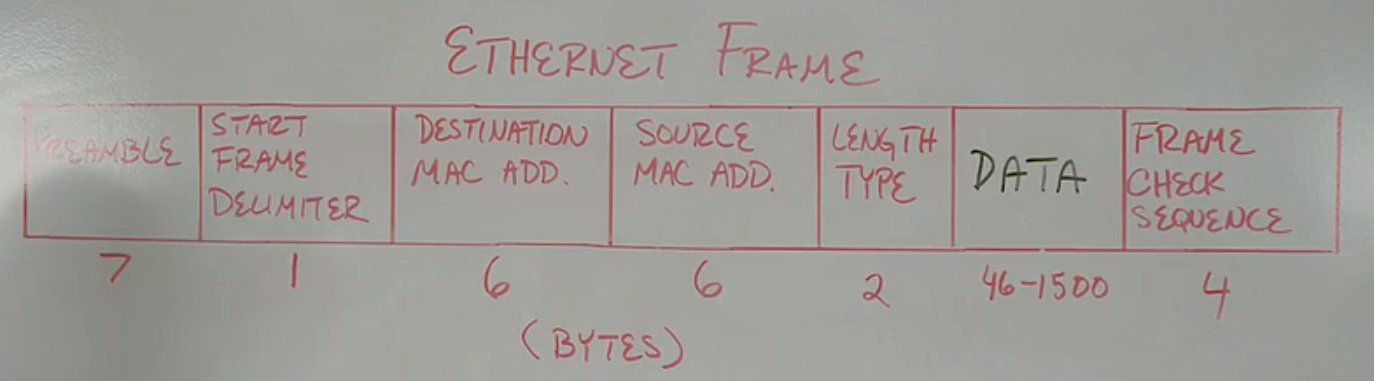 ETHERNET FRAME
PREAMBLE
START
FRAME
DELIMITER
DESTINATION
MAC ADD.
SOURCE
MAC ADD.
LENGTH
TYPE
DATA
FRAME
CHECK
SEQUENCE
7
1
6
6
2
46-1500
4
(BYTES)